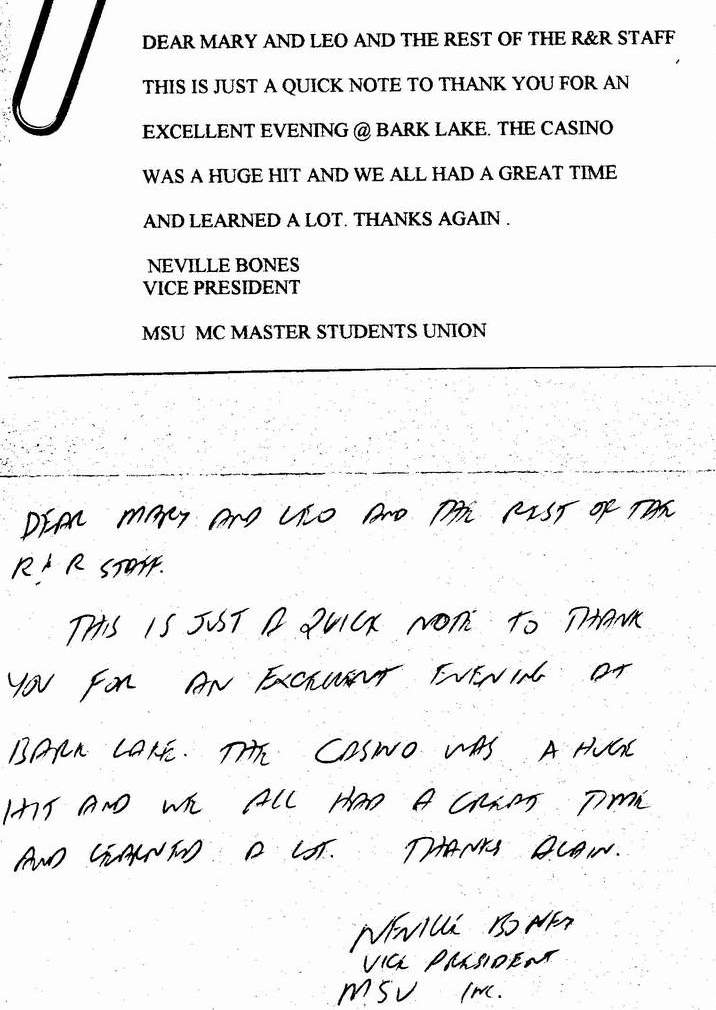 DEAR MARY AND LEO AND THE REST OF THE R&R STAFF
THIS IS JUST A QUICK NOTE TO THANK YOU FOR AN
EXCELLENT EVENING @ BARK LAKE. THE CASINO
WAS A HUGE HIT AND WE ALL HAD A GREAT TIME
AND LEARNED A LOT. THANKS AGAIN .
NEVILLE BONES
VICE PRESIDENT
MSU MC MASTER STUDENTS UNION
DEAR MARY AND LEO AND THE REST OF THE
R & R STAFF.
THIS IS JUST A QUICK NOTE TO THANK
YOU FOR AN EXCELLENT EVENING AT
BARK LAKE. THE CASINO WAS A HUGE
HIT AND WE ALL HAD A GREAT TIME
AND LEARNED A LOT. THANKS AGAIN.
NEVILLE BONES
VICE PRESIDENT
MSU INC.